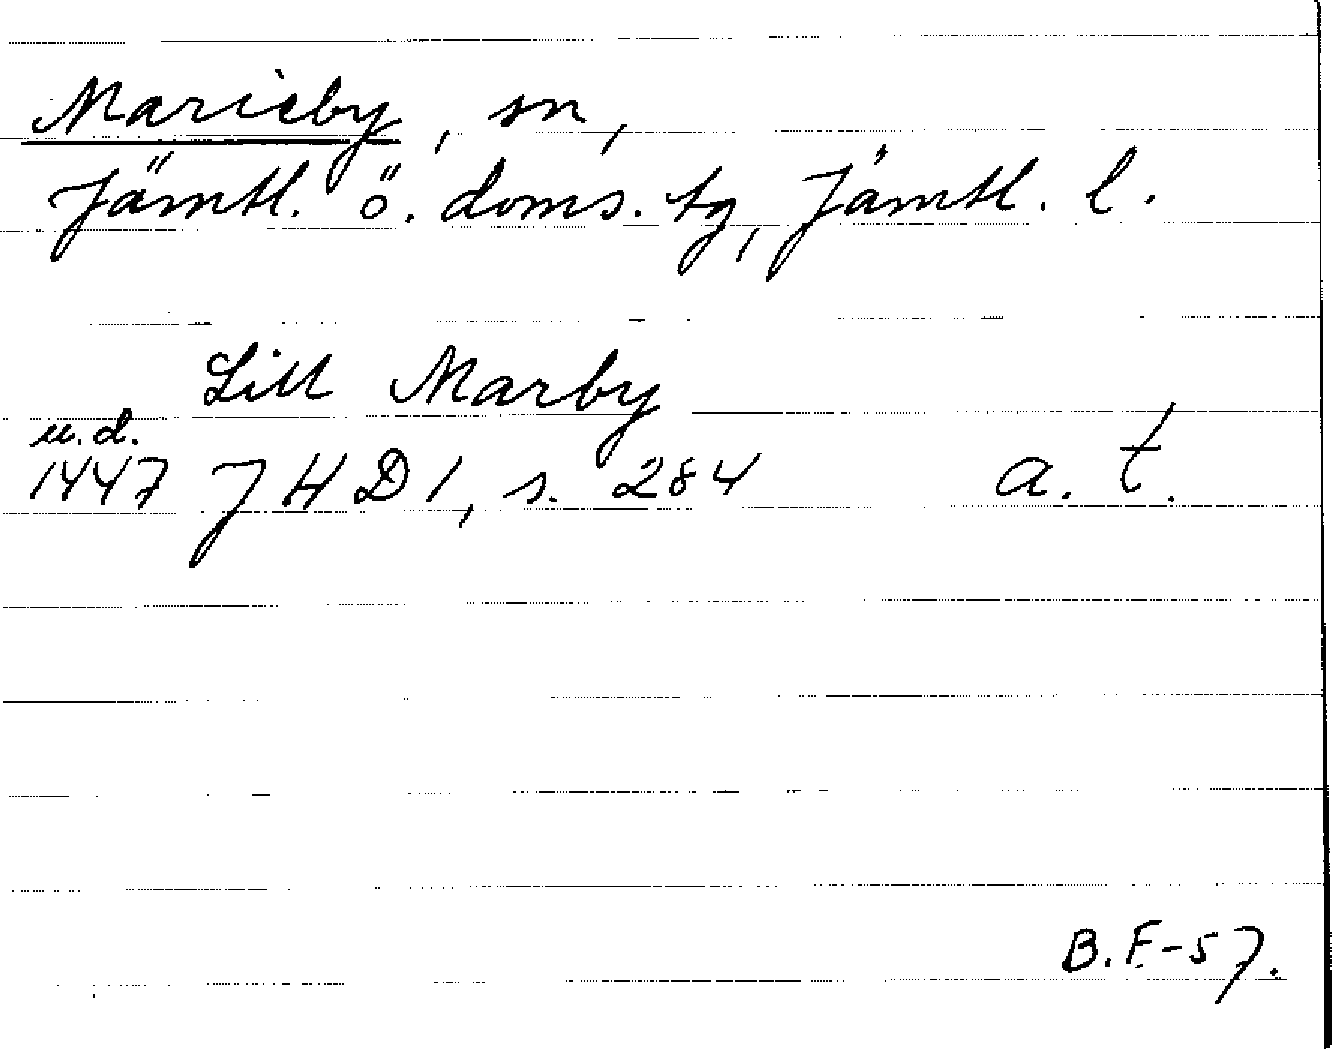 Marieby, sn,
Jämtl. ö. doms. tg, Jämtl. l.
Lill Marby
u.d.
1447 JHD 1, s. 284 a. t.
B.F-57.